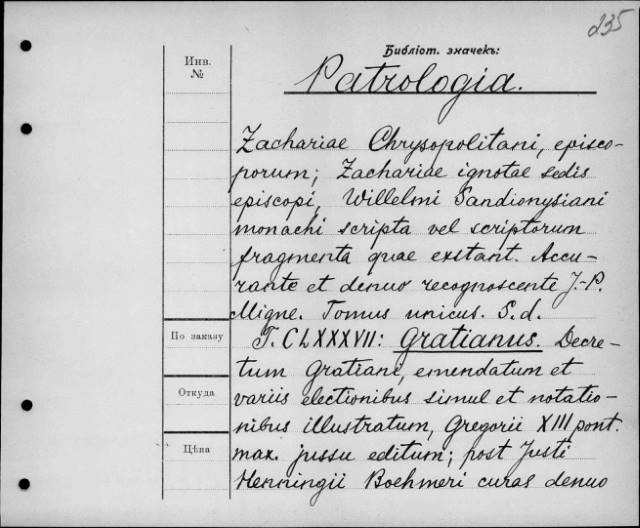 235
Библіот. значекъ:
Инв.
№
Patrologia.
Zachariae Chrysopolitani, episco-
porum; Zachariae ignotae sedis
episcopi, Willelmi Sandionysiani
monachi scripta vel scriptorum
fragmenta quae exstant. Accu-
rante et denuo recognoscente J.-P.
Migne. Tomus unicus. S.d.
По заказу
T. CLXXXVII: Gratianus. Decre-
tum Gratiani, emendatum et
Откуда
variis electionibus simul et notatio-
nibus illustratum, Gregorii XIII pont.
Цѣна
max. jussu editum; post Justi
Henningii Boehmeri curas denuo